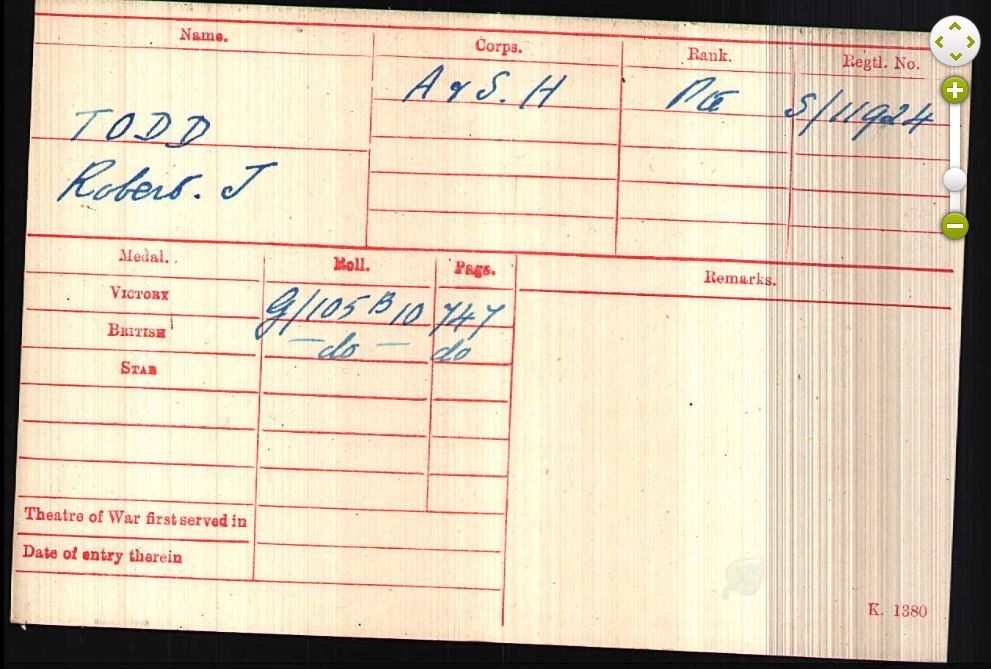 Name. Corps. Rank. Regtl. No.
A & S. H Pte S/11924
TODD
Robert. J
Medal. Roll. Page. Remarks.
VICTORY G/105 B 10 747
BRITISH — do — do
STAR
Theatre of War first served in
Date of entry therein
K. 1380